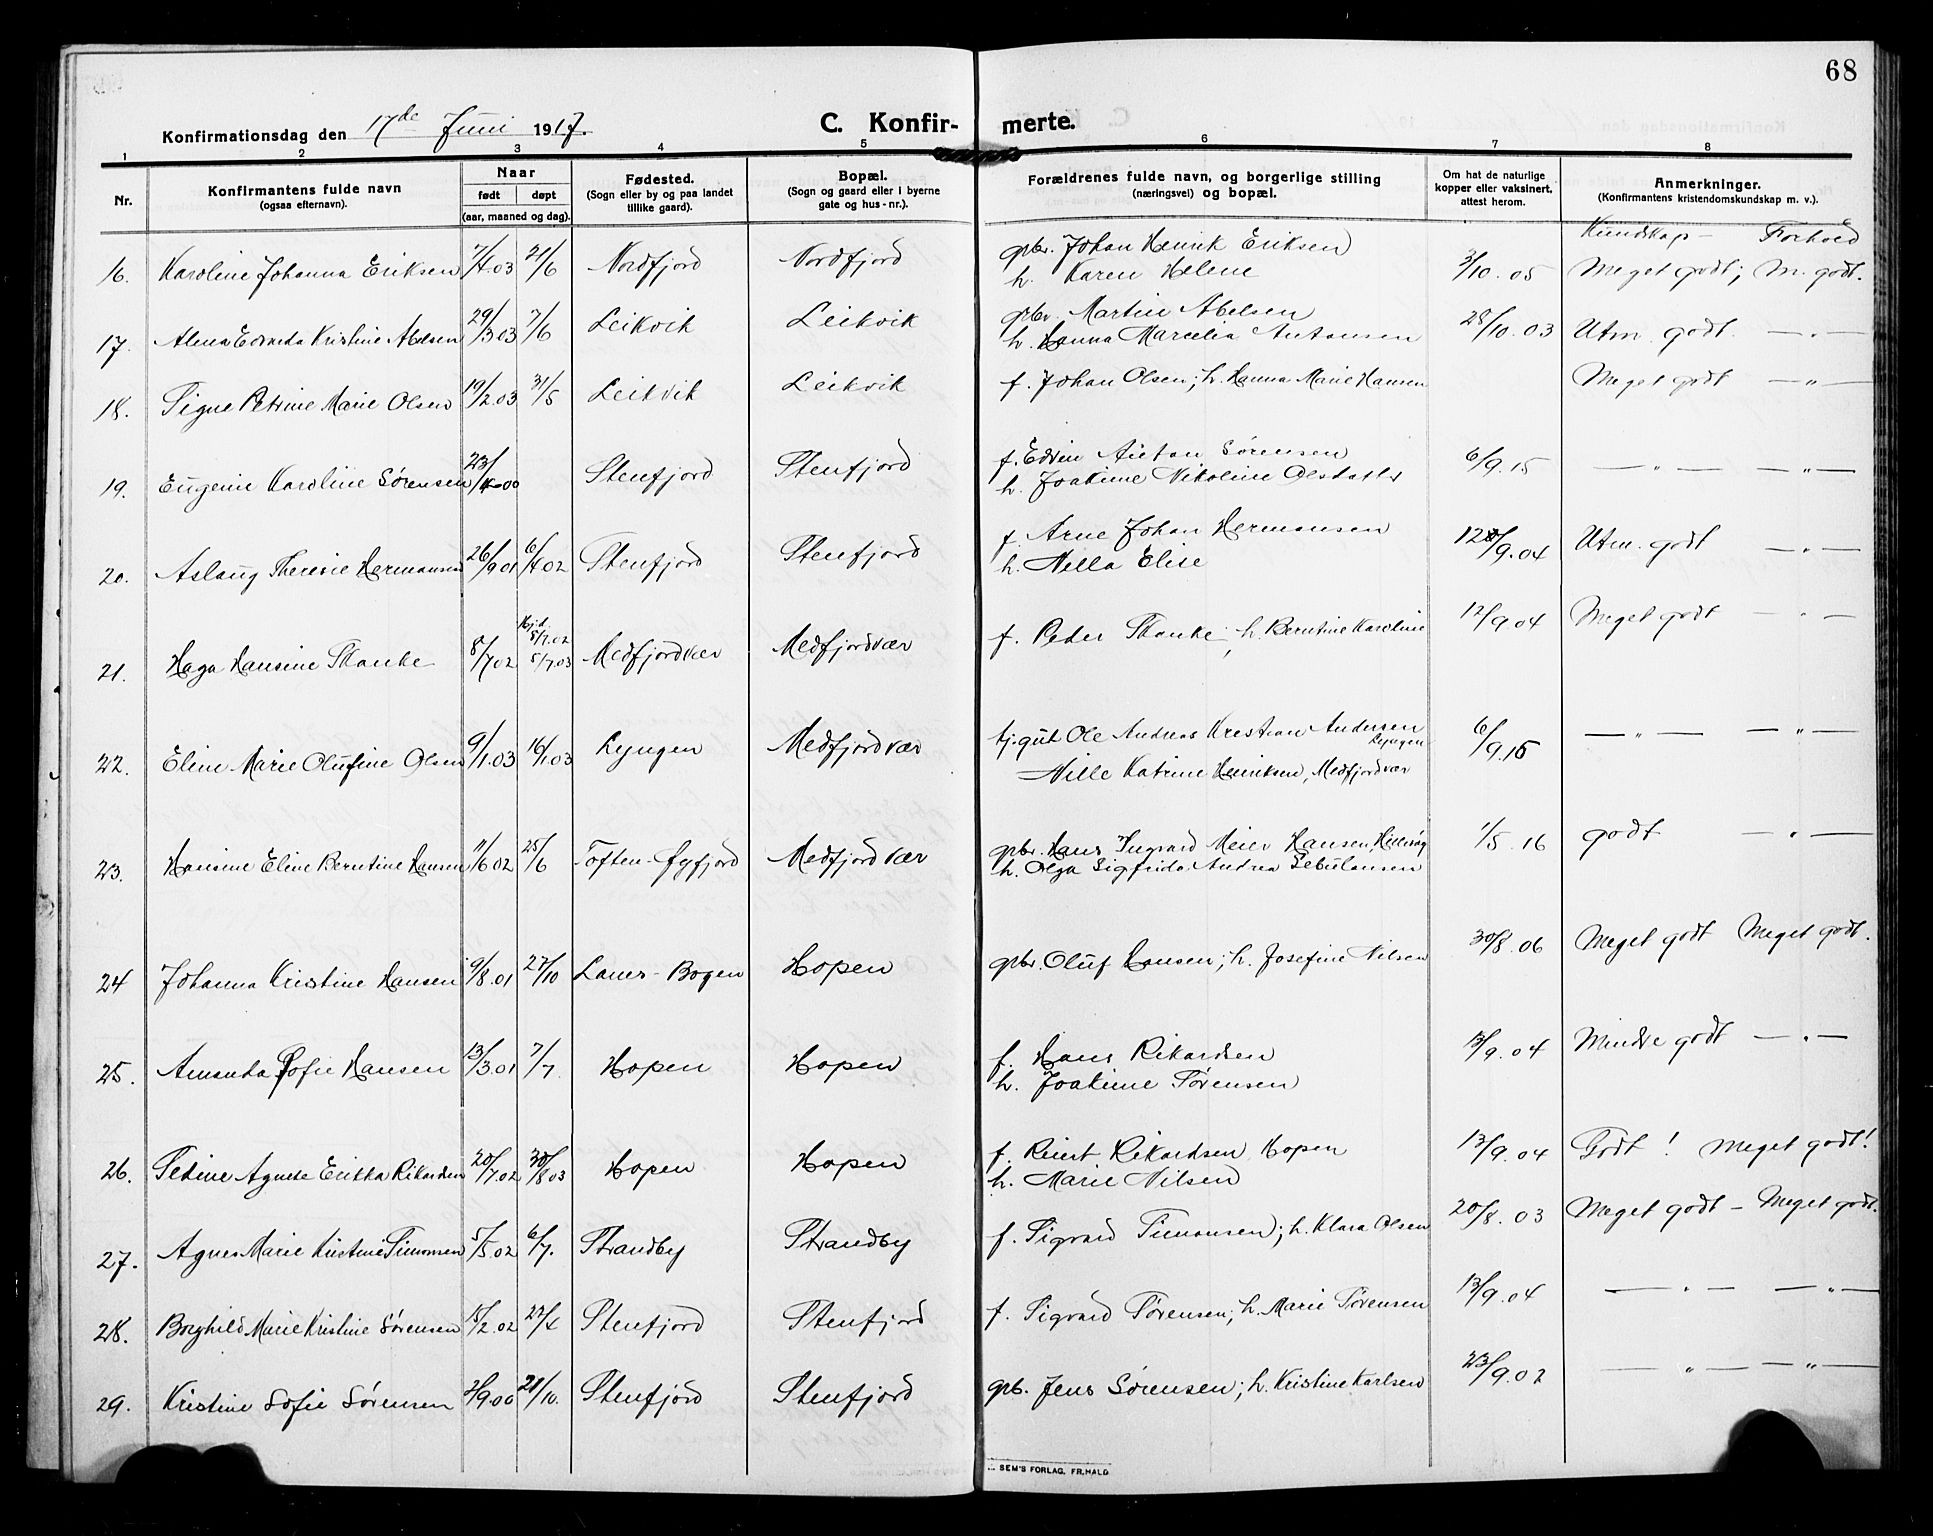 68
Konfirmationsdag den 17de Juni 1917.
C. Konfir- merte.
1 2 3 4 5 6 7 8
Nr.
Konfirmantens fulde navn
(ogsaa efternavn).
Naar
født døpt
(aar, maaned og dag).
Fødested.
(Sogn eller by og paa landet
tillike gaard).
Bopæl.
(Sogn og gaard eller i byerne
gate og hus-nr.).
Forældrenes fulde navn, og borgerlige stilling
(næringsvei) og bopæl.
Om hat de naturlige
kopper eller vaksinert,
attest herom.
Anmerkninger.
(Konfirmantens kristendomskundskap m. v.).
Kundskap - Forhold
16. Karoline Johanna Eriksen 7/4 03 21/6 Nordfjord Nordfjord gbr. Johan Henrik Eriksen 3/10 05 Meget godt; M. godt.
h. Karen Helene
17. Alena Edvarda Kristine Abelsen 29/3 03 7/6 Leikvik Leikvik gbr. Martin Abelsen 28/10 03 Utm. godt — " —
h. Hanna Marcelia Antonsen
18. Signe Petrine Marie Olsen 19/2 03 31/5 Leikvik Leikvik f. Johan Olsen; h. Hanna Marie Hansen Meget godt — " —
19. Eugenie Karoline Sørensen 23/4 00 Stenfjord Stenfjord f. Edvin Anton Sørensen 6/9.15 — " — — " —
h. Joakime Nikoline Olsdatter
20. Aslaug Theresie Hermansen 26/9 01 6/4 02 Stenfjord Stenfjord f. Arne Johan Hermansen 12/9.04 Utm. godt — " —
h. Nilla Elise
21. Haga Hansine Skanke 8/7 02 Hj.d. 8/7.02 5/7.03 Medfjordvær Medfjordvær f. Peder Skanke; h. Berntine Karoline 12/9.04 Meget godt — " —
22. Eline Marie Olufine Olsen 9/1.03 16/1.03 Lyngen Medfjordvær tj.gut Ole Andreas Kristian Andersen Lyngen 6/9.15 — " — — " —
Nille Katrine Henriksen, Medfjordvær
23. Hansine Eline Berntine Hansen 11/6 02 25/6 Toften-Øyfjord Medfjordvær gbr. Hans Ingvard Meier Hansen, 1/5.16 godt — " —
h. Olga Sigfrida Andrea Sebulonsen
24 Johanna Kristine Hansen 9/8.01 27/10 Laner-Bogen Hopen gbr. Oluf Hansen; h. Josefine Nilsen 30/8.06 Meget godt Meget godt.
25. Amanda Sofie Hansen 13/3.01 7/7 Hopen Hopen f. Hans Rikardsen 13/9.04 Mindre godt — " —
h. Joakime Sørensen
26. Petine Agnete Erikka Rikardsen 20/7.02 30/8 03 Hopen Hopen f. Reiert Rikardsen Hopen 13/9.04 Godt! Meget godt!
h. Marie Nilsen
27. Agnes Marie Kristine Simonsen 5/5.02 6/7. Strandby Strandby f. Sigvard Simonsen; h. Klara Olsen 20/8.03 Meget godt - Meget godt.
28. Borghild Marie Kristine Sørensen 15/2.02 27/4 Stenfjord Stenfjord f. Sigvard Sørensen; h. Marie Sørensen 13/9.04 — " — — " —
29. Kristine Sofie Sørensen 2/9.00 28/10. Stenfjord Stenfjord gbr. Jens Sørensen; h. Kristine Karlsen 23/9.02 — " — — " —
SEM'S FORLAG, FR.HALD